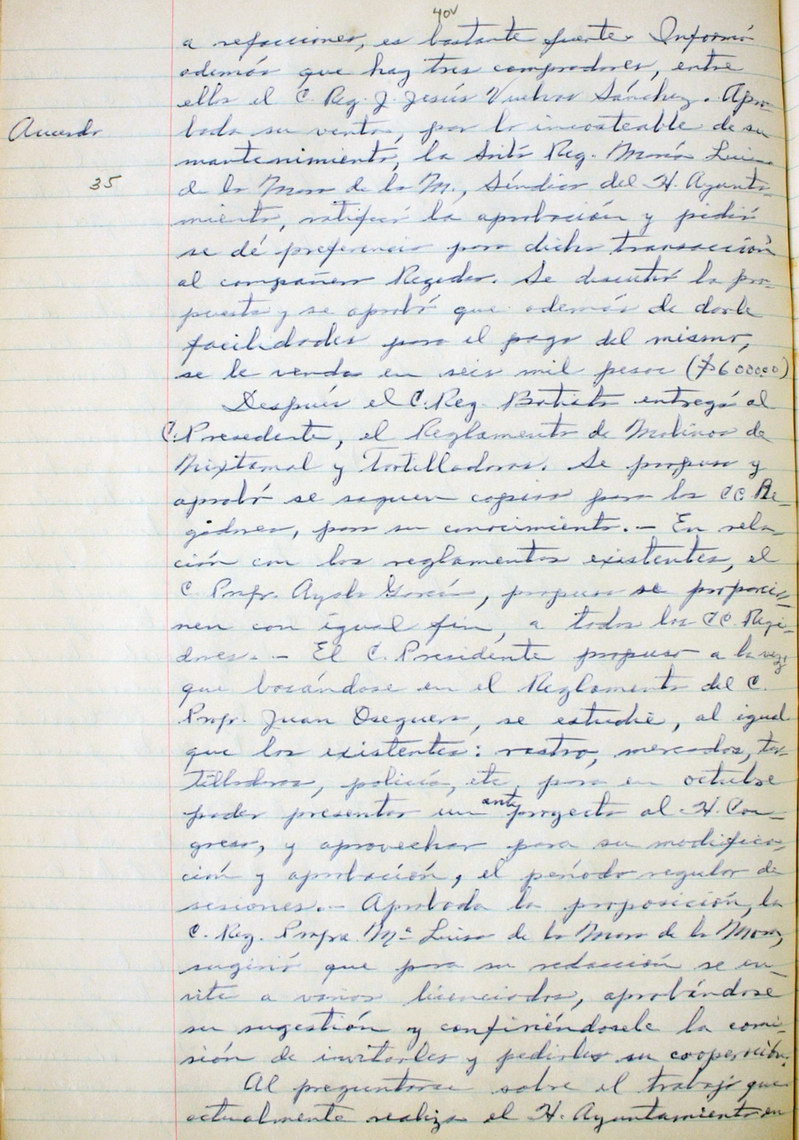 40v
a refacciones, es bastante fuerte. Informó
además que hay tres compradores, entre
ellos el C. Reg. J. Jesús Vuelvas Sánchez. Apro-
Acuerdo
bada su venta, por lo incosteable de su
mantenimiento, la Srita Reg. María Luisa
35
de la Mora de la M., Síndico del H. Ayunta-
miento, ratificó la aprobación y pidió
se dé preferencia para dicha transacción
al compañero Regidor. Se discutió la pro-
puesta y se aprobó que además de darle
facilidades para el pago del mismo,
se le venda en seis mil pesos ($600000)
Después el C. Reg. Batista entregó al
C. Presedente, el Reglamento de Molinos de
Nixtamal y Tortilladoras. Se propuso y
aprobó se saquen copias para los CC. Re-
gidores, para su conocimiento. - En rela-
ción con los reglamentos existentes, el
C. Profr. Ayala García, propuso se proporcio-
nen con igual fin, a todos los CC. Regi-
dores. - El C. Presidente propuso a la vez
que basándose en el Reglamento del C.
Profr. Juan Oseguera, se estudie, al igual
que los existentes: rastro, mercados, tor-
tilladoras, policía, etc. para en octubre
poder presentar un anteproyecto al H. Con-
greso, y aprovechar para su modifica-
ción y aprobación, el período regular de
sesiones. - Aprobada la proposición, la
C. Reg. Profra. Ma. Luisa de la Mora de la Mora,
sugirió que para su redacción se in-
vite a varios licenciados, aprobándose
su sugestión y confiriéndosele la comi-
sión de invitarles y pedirles su cooperación.
Al preguntarse sobre el trabajo que
actualmente realiza el H. Ayuntamiento en